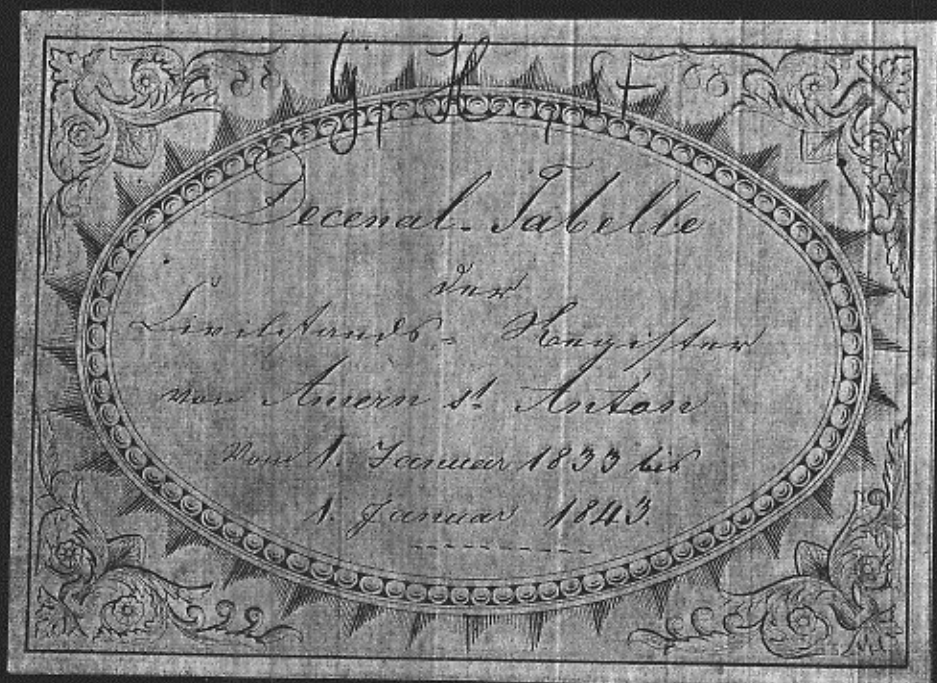 G, H, St
Decenal-Tabelle
der
Civilstands-Register
von Amern st Anton
vom 1. Januar 1833 bis
1. Januar 1843.